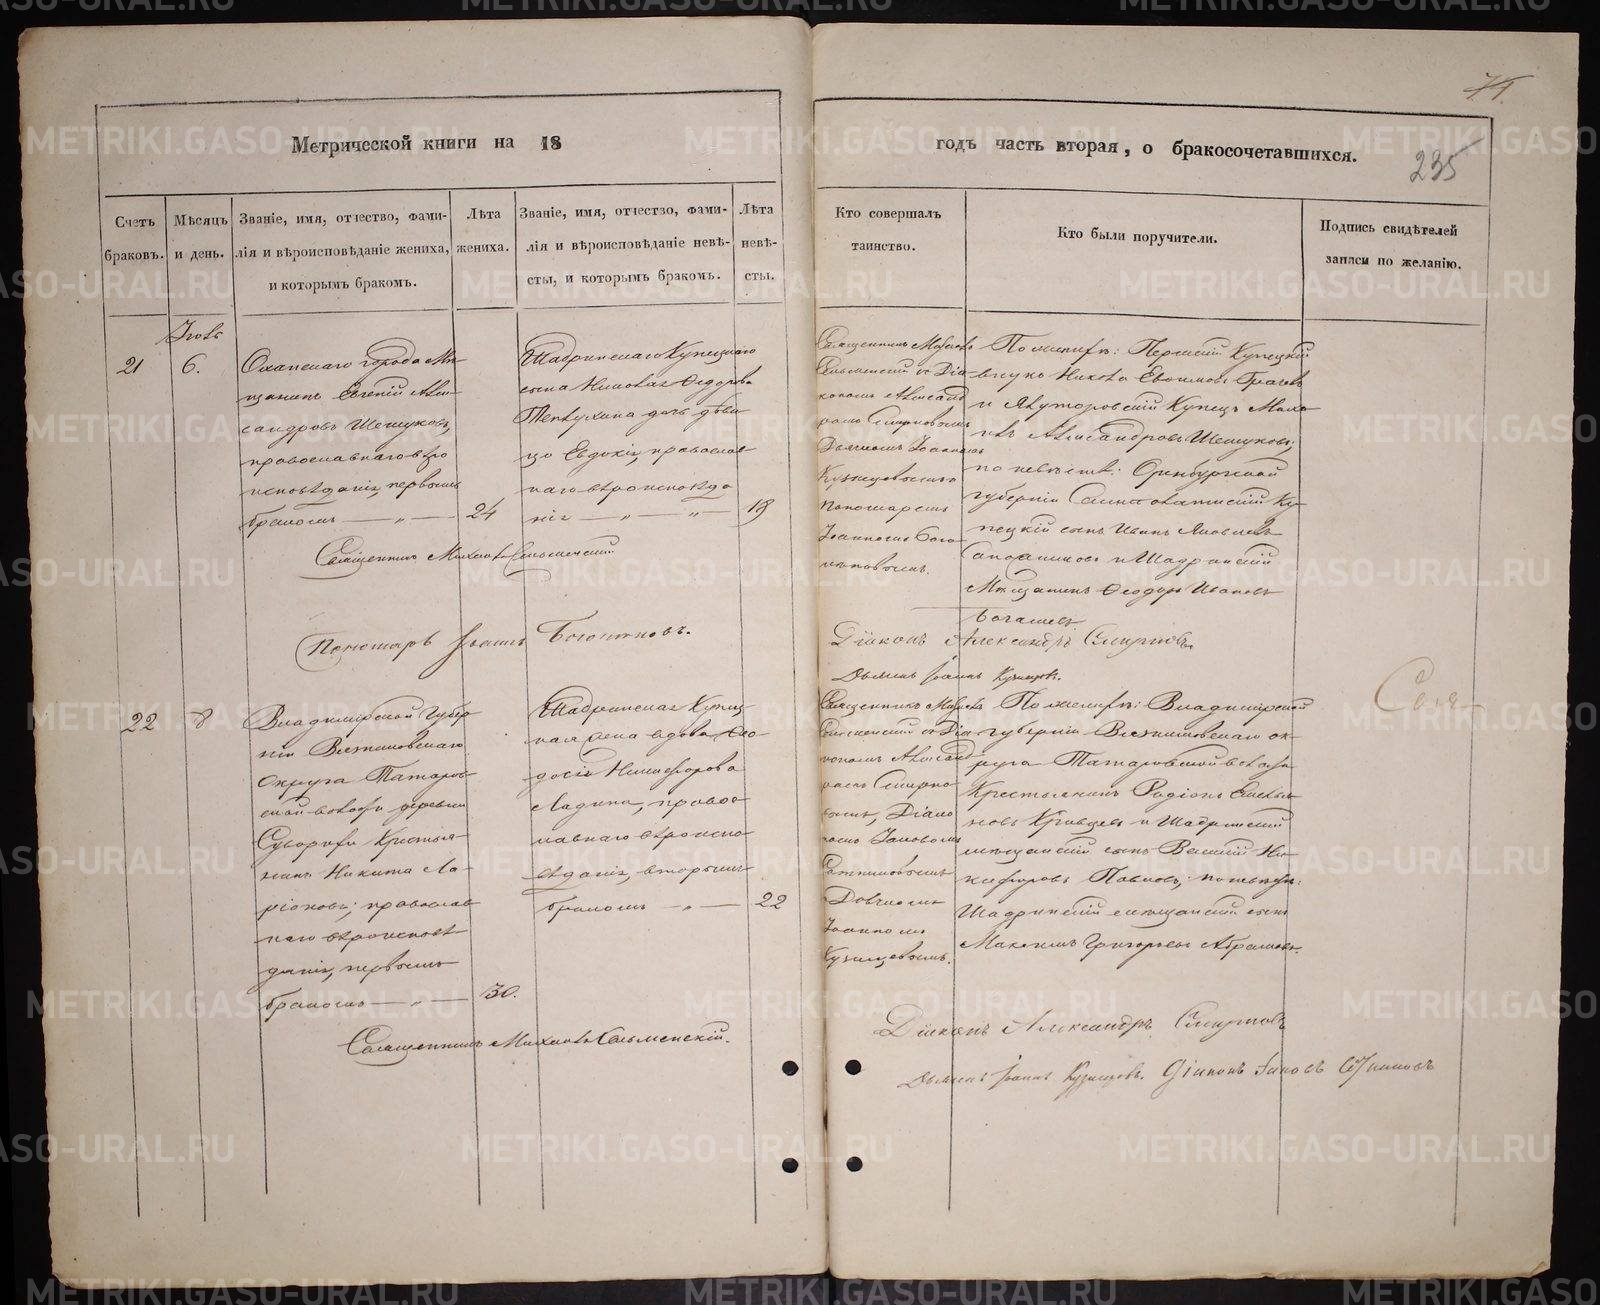 71.
235
Метрической книги на 18
годъ часть вторая, о бракосочетавшихся.
Счетъ браковъ.
Мѣсяцъ и день.
Званіе, имя, отчество, фами-
лія и вѣроисповѣданіе жениха,
и которымъ бракомъ.
Лѣта жениха.
Званіе, имя, отчество, фами-
лія и вѣроисповѣданіе невѣ-
сты, и которымъ бракомъ.
Лѣта невѣ-
сты.
Кто совершалъ
таинство.
Кто были поручители.
Подпись свидѣтелей
записи по желанію.
21
6.
Оханскаго города Мѣ-
щанинъ Евгеній Алек-
сандровъ Шешуковъ,
православнаго вѣро
исповѣданія, первымъ
бракомъ — „ —
24
Шадринскаго Купецкаго
сына Николая Ѳедорова
дочь дѣви
ца Евдокія, православ
наго вѣроисповѣда
нія — „ — „ —
18
Священникъ Михаилъ
Сельменскій съ Діа
кономъ Александ
ромъ Смирновымъ
Дьячкомъ Іоанномъ
Кузнецовымъ
Пономаремъ
Іоанномъ
По женихѣ: Пермскій Купецкій
внукъ
и Ялуторовскій Купецъ Миха
илъ Александровъ Шешуковъ;
по невѣстѣ: Оренбургской
губерніи Ку-
пецкій сынъ Иванъ Яковлевъ
и Шадринскій
Мѣщанинъ Ѳеодоръ Ивановъ
Священникъ Михаилъ Сельменскій
Пономарь Іоаннъ
Діаконъ Александръ Смирновъ.
Дьячекъ Іоаннъ Кузнецовъ.
22
8
Владимірской Губер
ніи Вязниковскаго
Округа Татаров-
ской волости деревни
Суворихи Крестья-
нинъ Никита Ла-
ріоновъ; православ
наго вѣроисповѣ
данія, первымъ
бракомъ — „ —
30.
Шадринская Купец-
кая жена вдова Ѳео-
досія Никифорова
Ладина, правос
лавнаго вѣроиспо
вѣданія, вторымъ
бракомъ — „ —
22
Священникъ Михаилъ
Сельменскій съ Діа
кономъ Александ
ромъ Смирно
вымъ, Діако
номъ Іаковомъ
Дьячкомъ
Іоанномъ
Кузнецовымъ.
По женихѣ: Владимірской
губерніи Вязниковскаго ок-
руга Татаровской волости
Крестьянинъ Родіонъ
и Шадринскій
мѣщанскій сынъ Василій Ни-
кифоровъ по невѣстѣ:
Шадринскій мѣщанскій сынъ
Максимъ Григорьевъ Абрамовъ.
Священникъ Михаилъ Сельменскій.
Діаконъ Александръ Смирновъ
Дьячекъ Іоаннъ Кузнецовъ. Діаконъ Іаковъ
METRIKI.GASO-URAL.RU